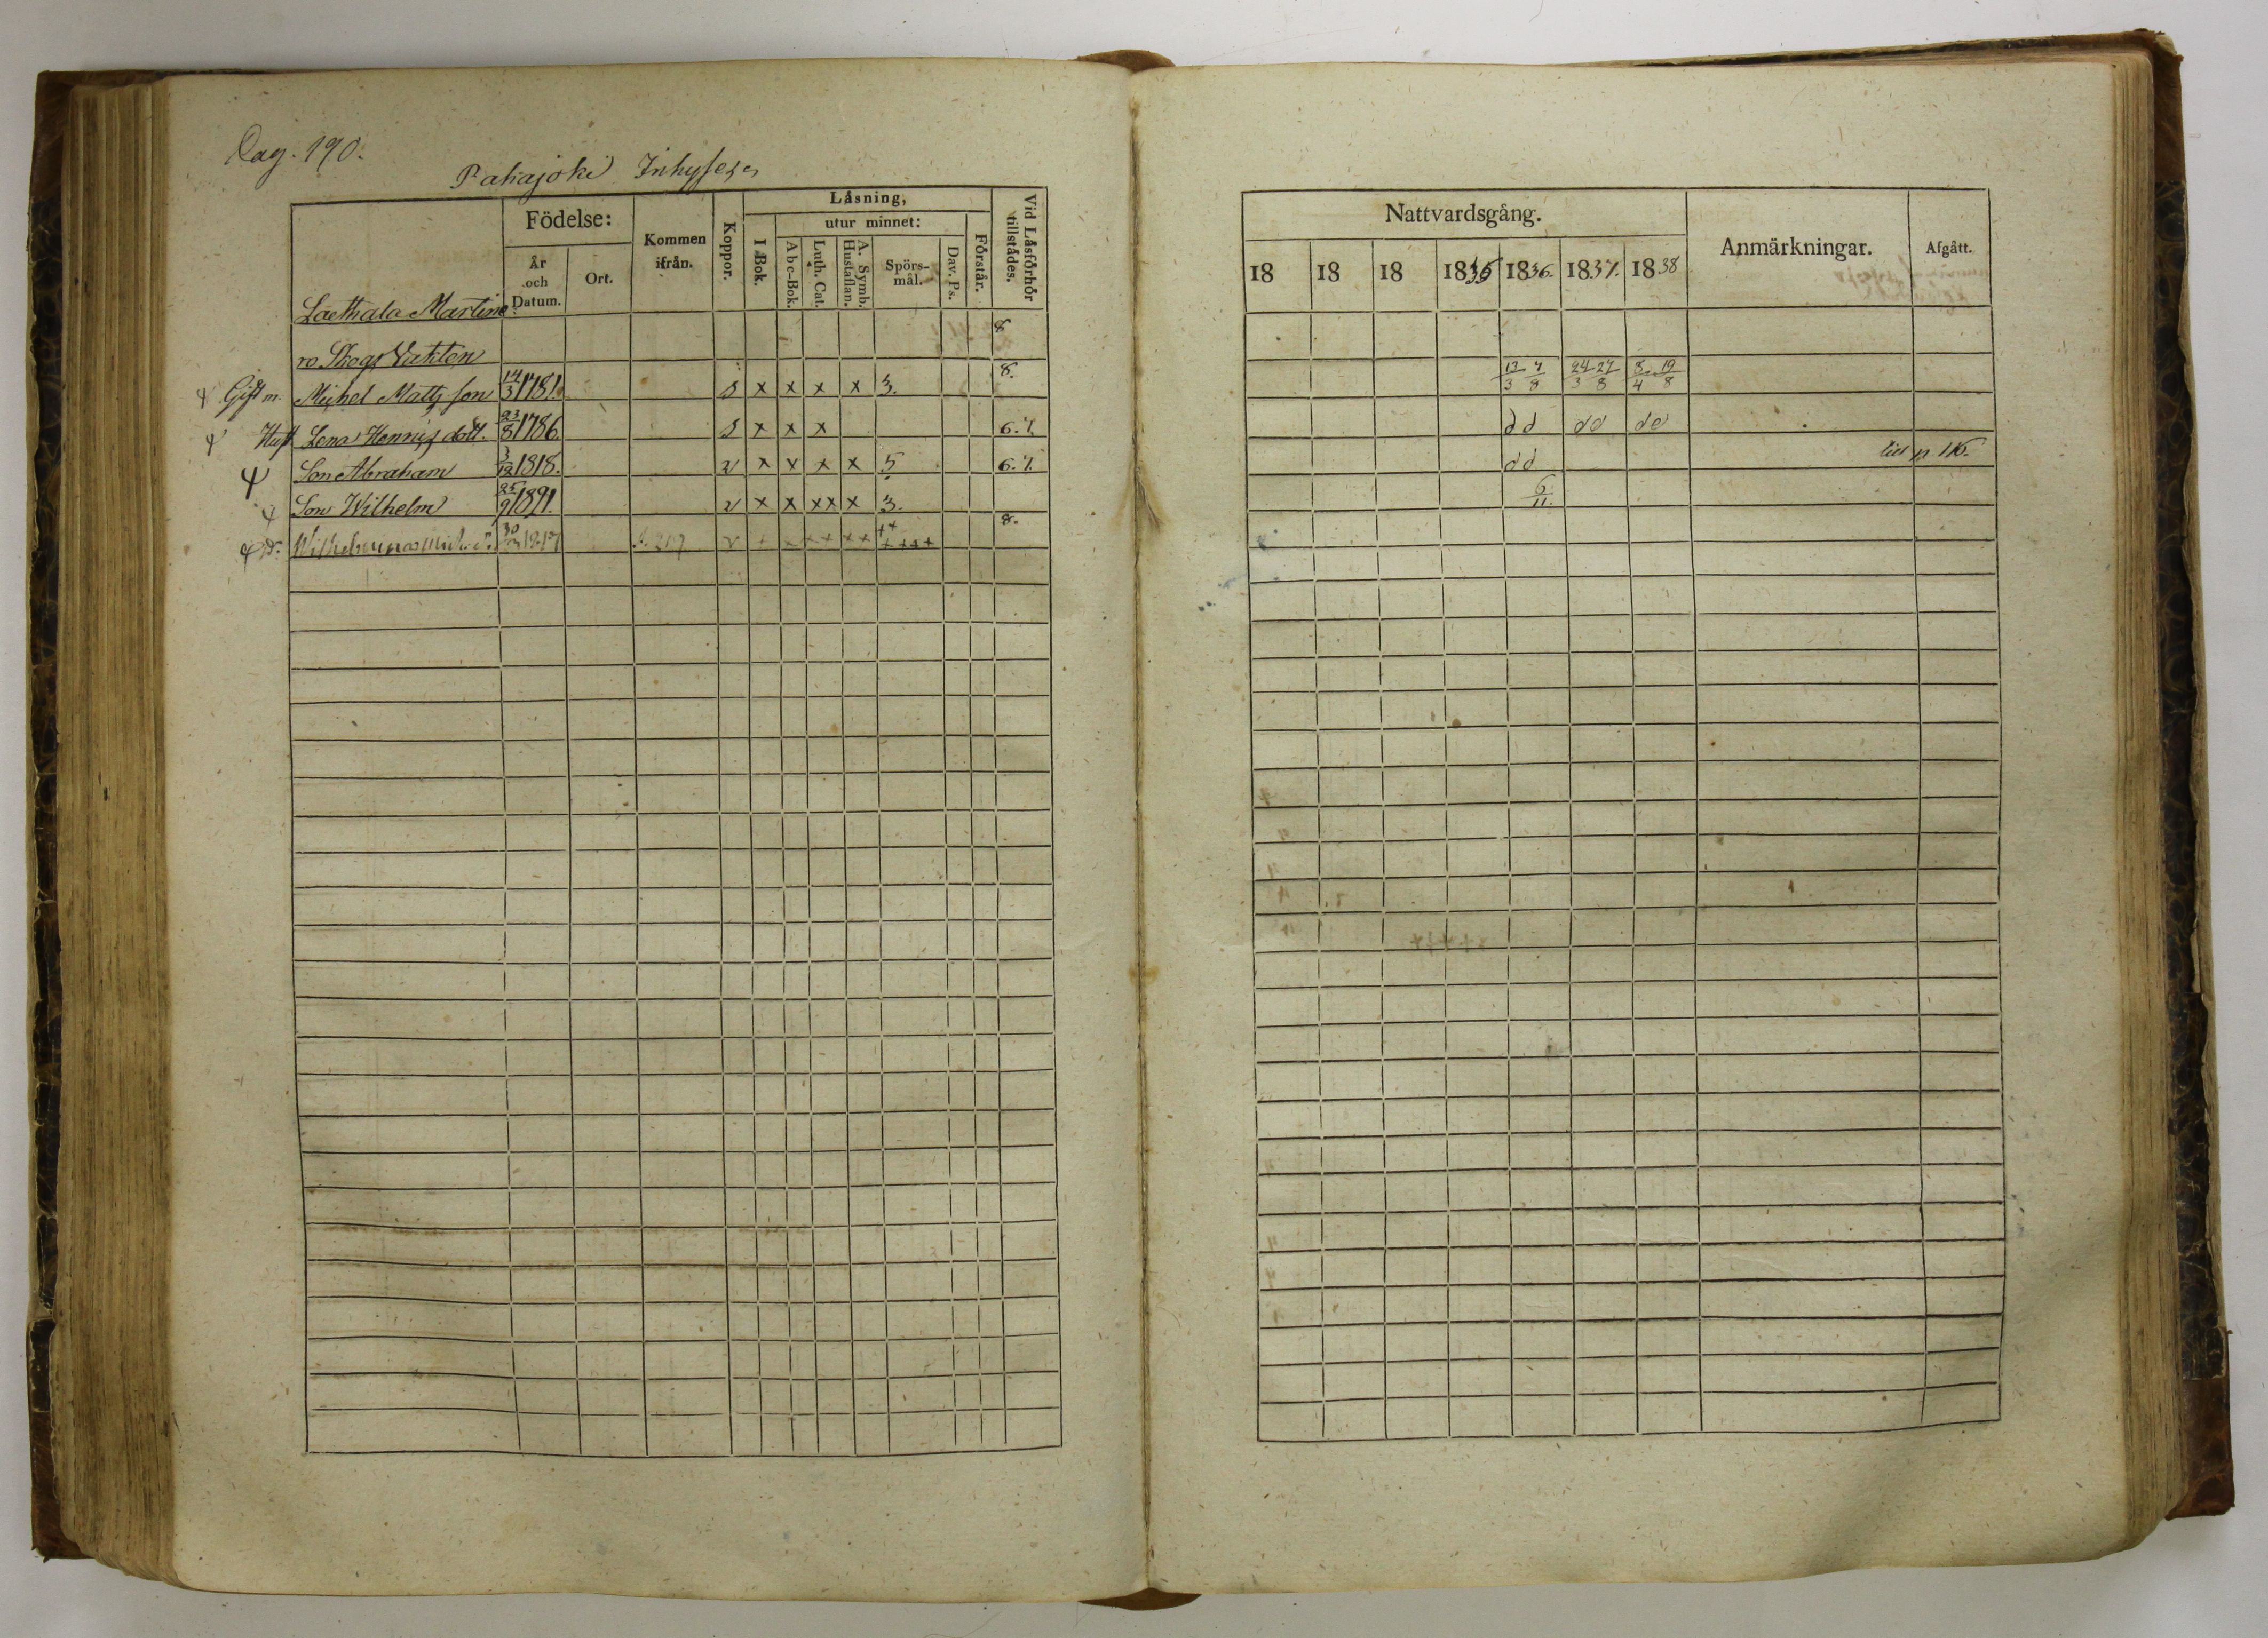 Pag. 190.
Pahajoki Inhyses
Födelse:
År och Datum.
Ort.
Kommen ifrån.
Koppor.
Läsning,
I Bok.
utur minnet:
Abc-Bok.
Luth. Cat.
A. Symb. Hustaflan.
Spörs-mål.
Dav. Ps.
Förstår.
Vid Läsförhör tillstådes.
Nattvardsgång.
18 18 18 1835 1836. 1837. 1838
Anmärkningar.
Afgått.
Laethala Martin
8
ro Skogs Vakten
Gift m. Michel Matts son 14/3 1781. s x x x x 3. 8. 13/3 7/8 24/3 27/8 8/4 19/8
Hust Lena Henrics dott. 23/8 1786. s x x x 6.7. dd do do
Son Abraham 3/12 1818. v x x x x 5 6.7. dd till p 116.
Son Wilhelm 25/9 1821. v x x xx x 3. 6/11.
Wilhelmina 30 1817 v 8.